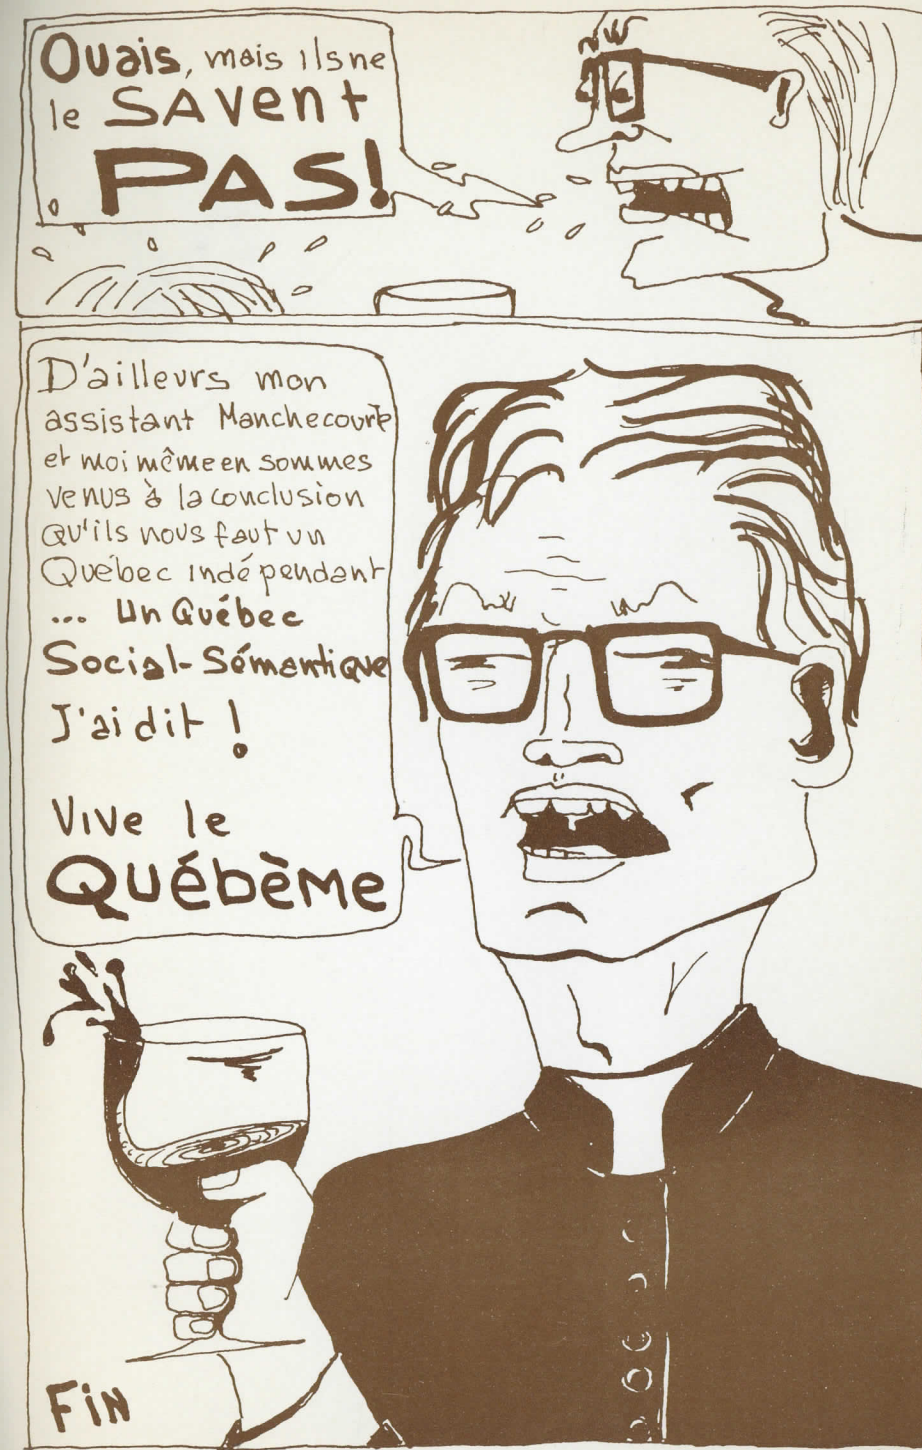 Ouais, mais ils ne
le SAVent
PAS!
D'ailleurs mon
assistant Manchecourte
et moi même en sommes
venus à la conclusion
qu'ils nous faut un
Québec indépendant
... Un Québec
Social-Sémantique
J'ai dit !
Vive le
QUÉbèMe
Fin